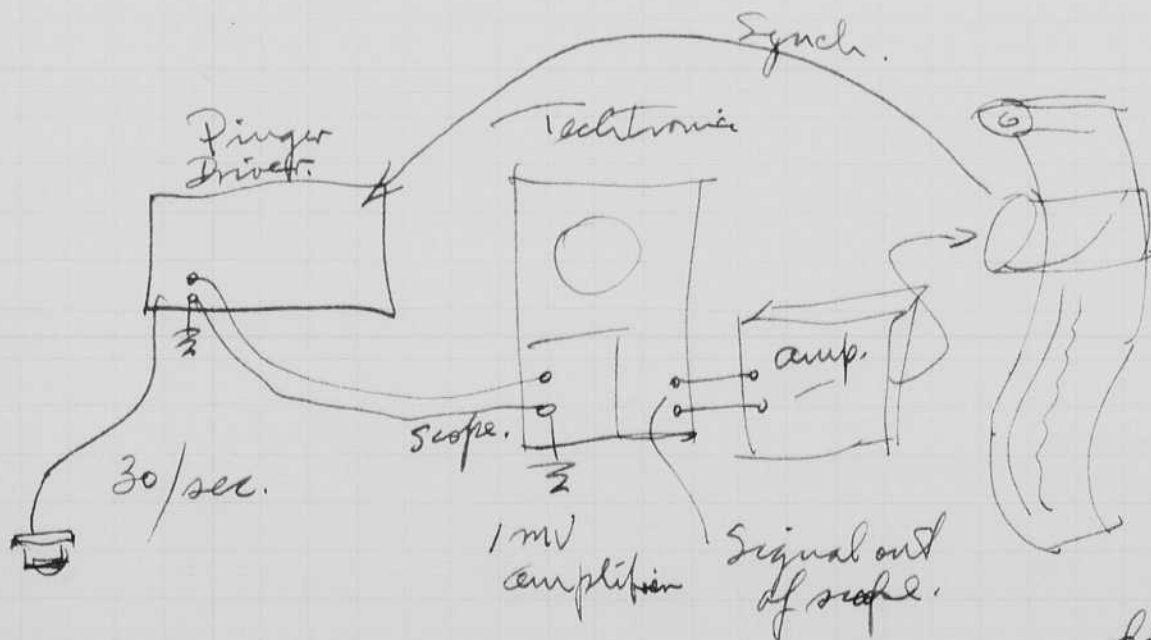 Synch.
Pinger
Driver.
Techtronic
amp.
scope.
30/sec.
1 mV
amplifier
Signal out
of scope.